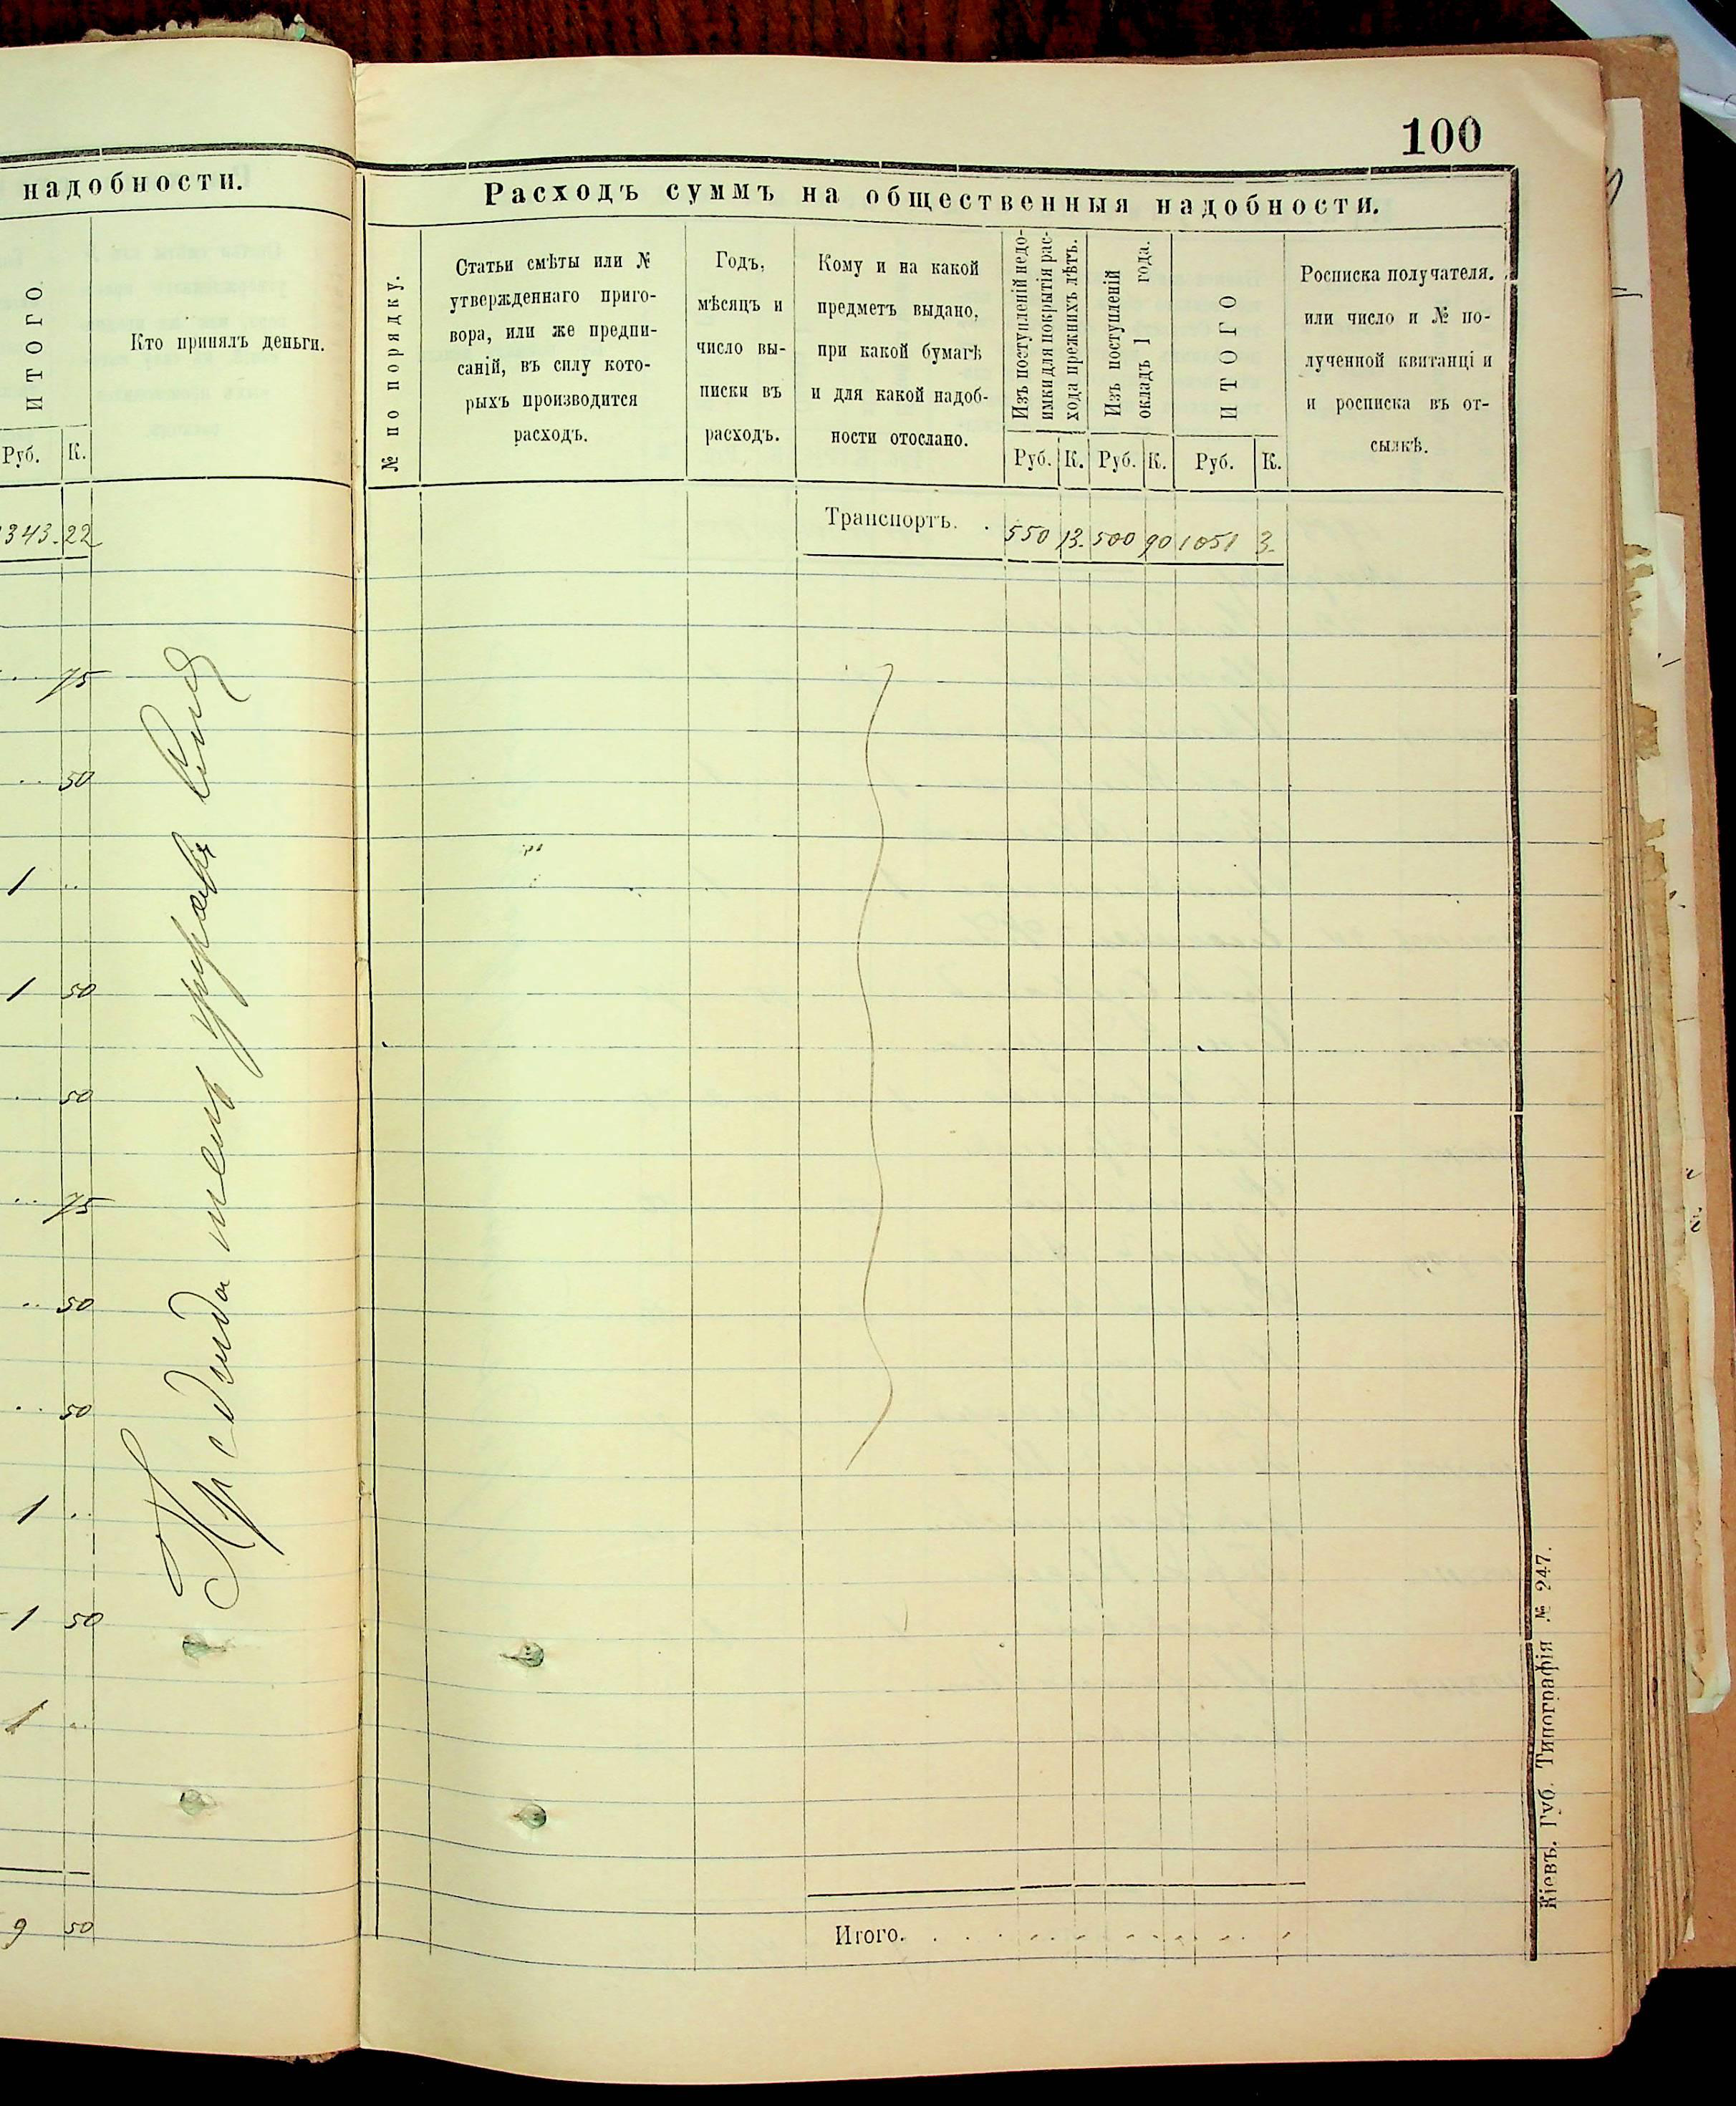 надобности.
ИТОГО.
Кто принялъ деньги.
Руб. К.
343. 22
75
50
1
1 50
50
75
50
50
1
1 50
1
9 50
управы
100
Расходъ суммъ на общественныя надобности.
№ по порядку.
Статьи смѣты или №
утвержденнаго приго-
вора, или же предпи-
саній, въ силу кото-
рыхъ производится
расходъ.
Годъ,
мѣсяцъ и
число вы-
писки въ
расходъ.
Кому и на какой
предметъ выдано,
при какой бумагѣ
и для какой надоб-
ности отослано.
Изъ поступленій недо-
имки для покрытія рас-
хода прежнихъ лѣтъ.
Изъ поступленій
окладъ 1 года.
ИТОГО
Росписка получателя.
или число и № по-
лученной квитанціи
и росписка въ от-
сылкѣ.
Руб. К. Руб. К. Руб. К.
Транспортъ. . 550 13. 500 90 1051 3.
Итого.
Кіевъ. Губ. Типографія № 247.